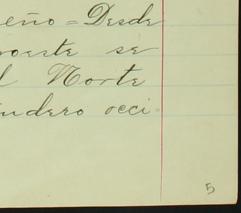 eño = Desde
oeste se
l Norte
ndero occi-
5